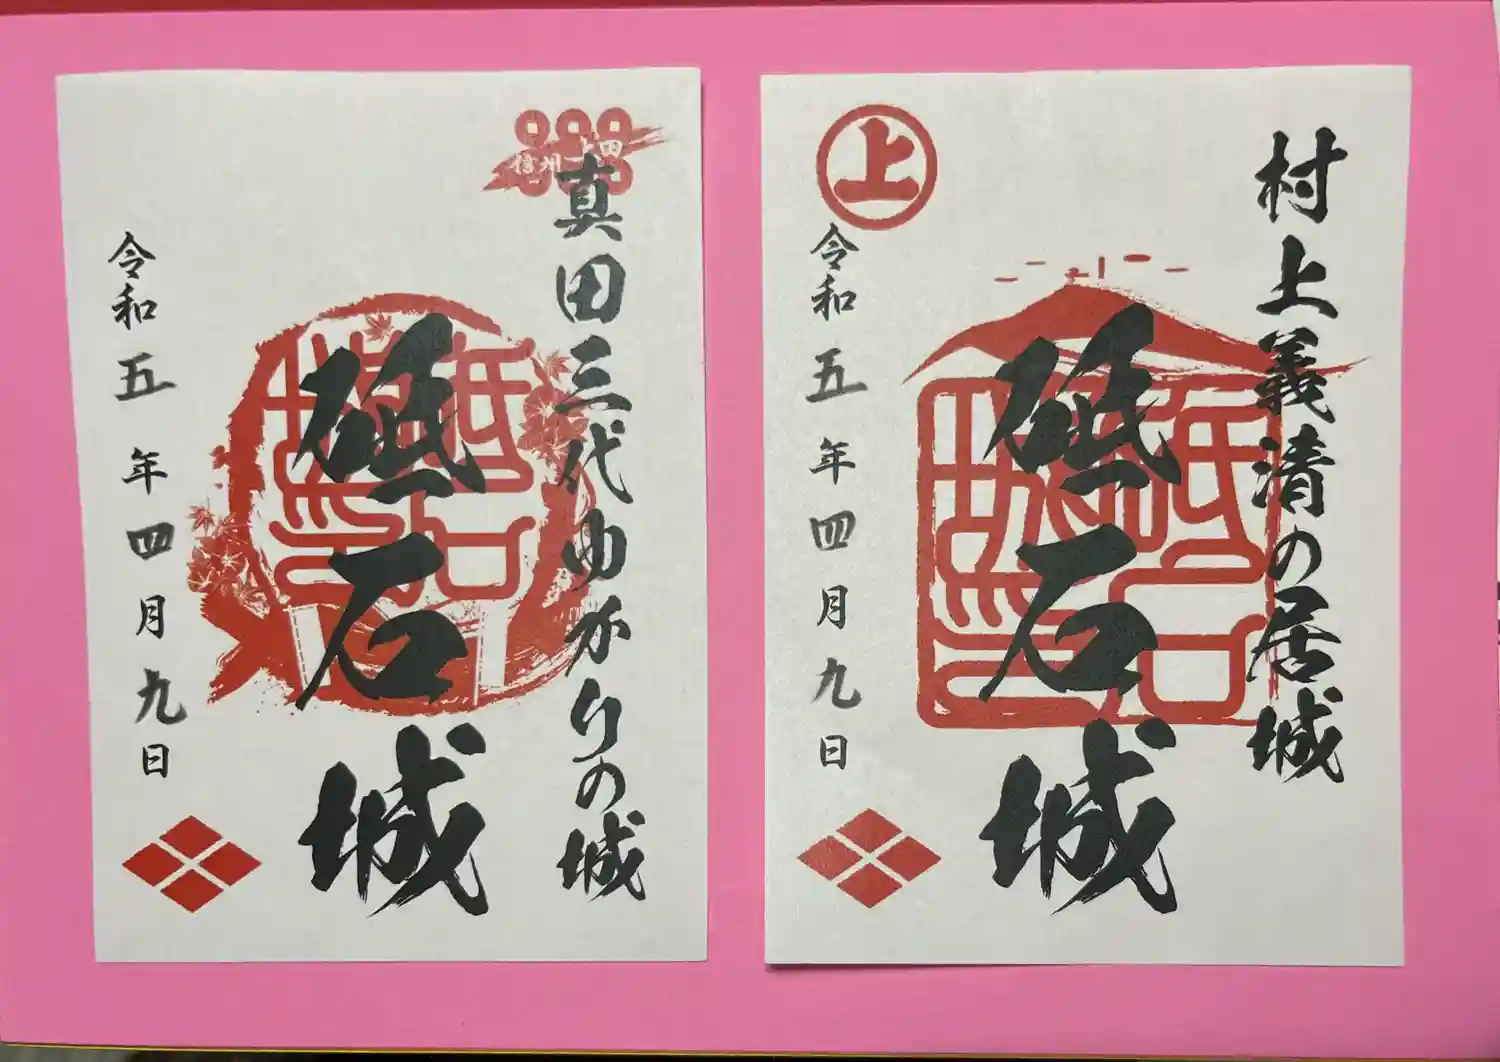 村上義清の居城
砥石城
上
令和五年四月九日
信州上田
真田三代ゆかりの城
砥石城
令和五年四月九日